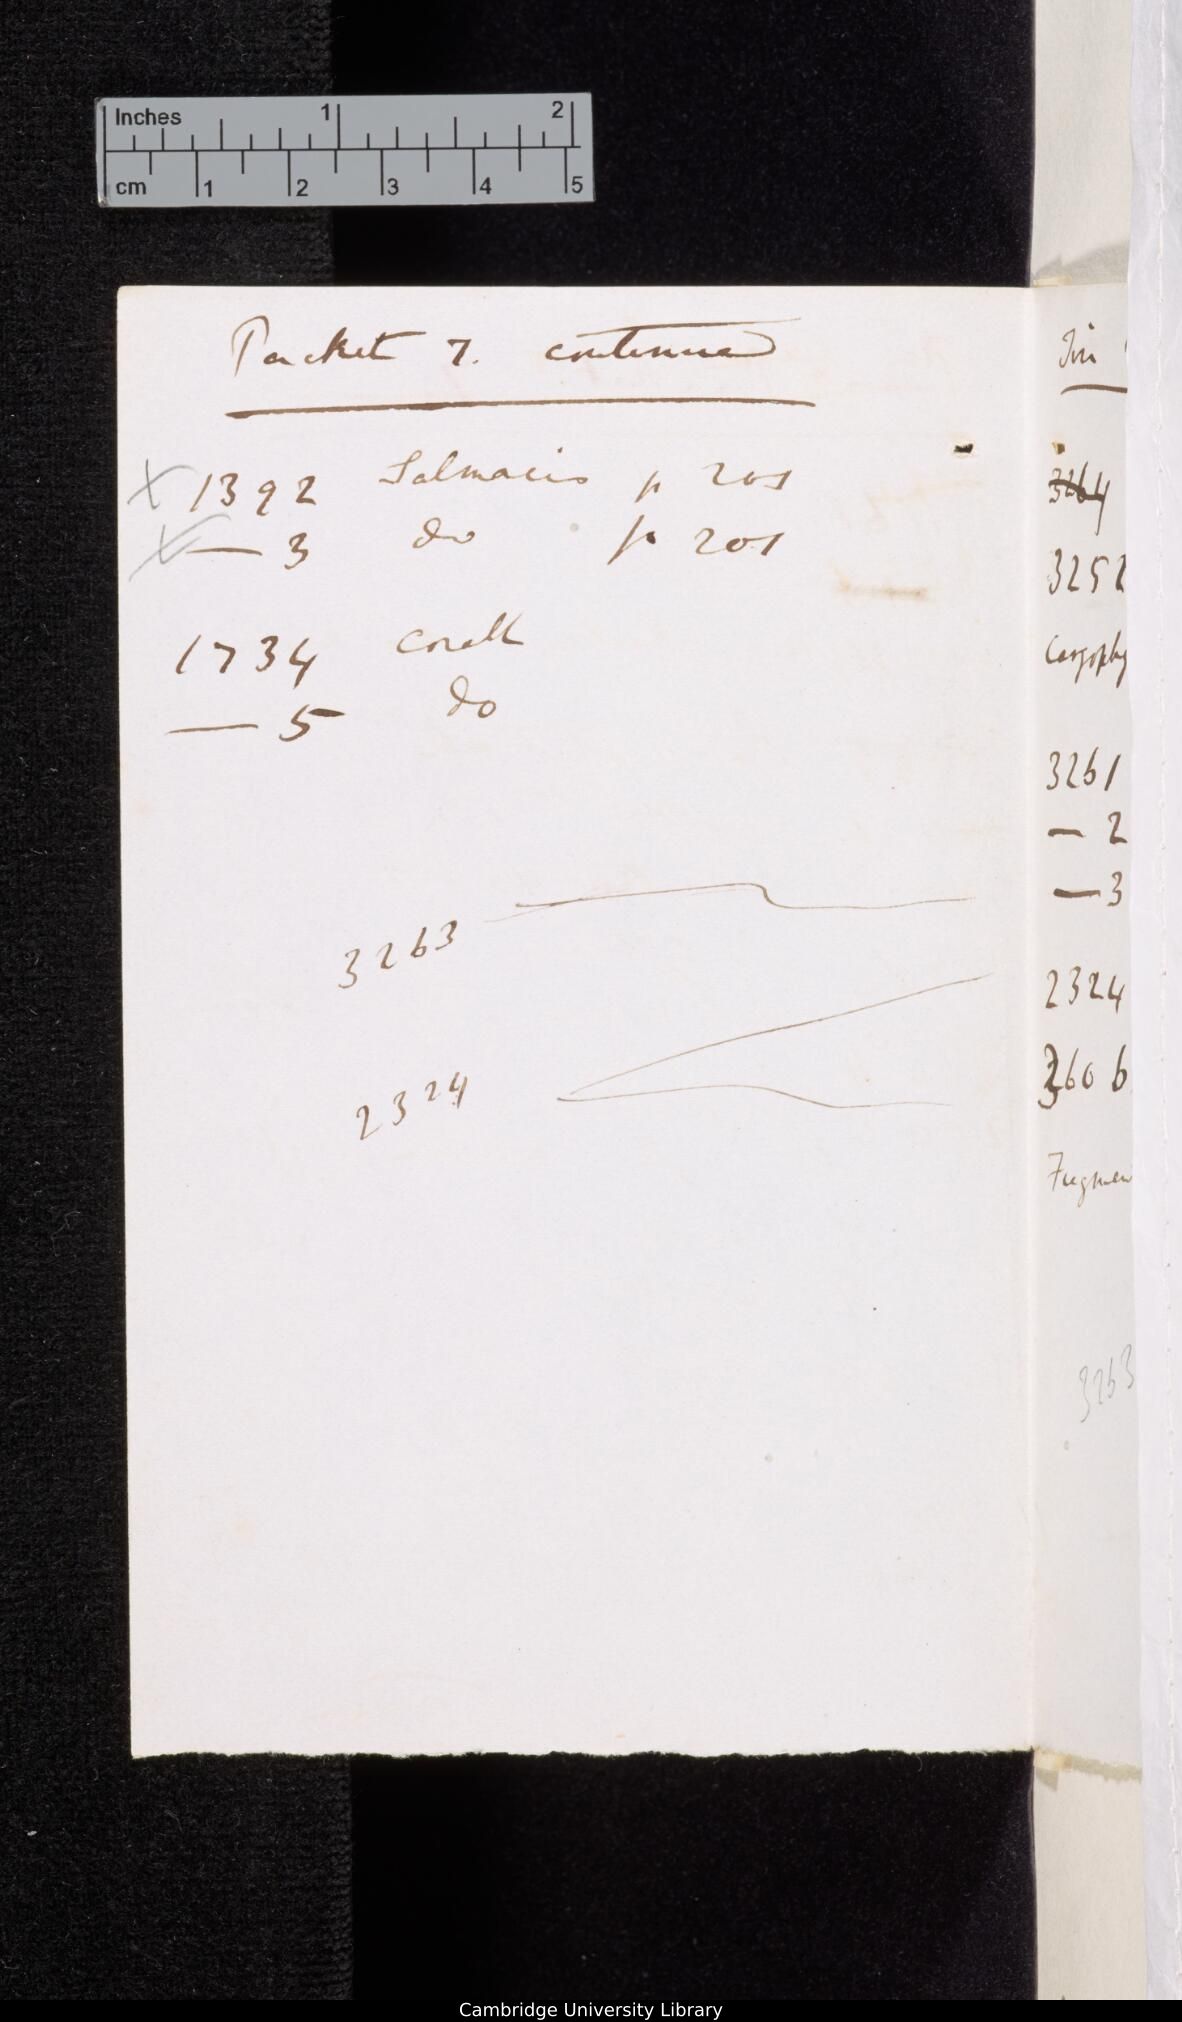 Inches 1 2
cm 1 2 3 4 5
Packet 7. continued
X 1392 Salmacis p 201
X — 3 do p 201
1734 Corall
— 5 do
3263
2324
Tin
3264
3252
Caryophy
3261
— 2
— 3
2324
3606
Fragmen
3263
Cambridge University Library